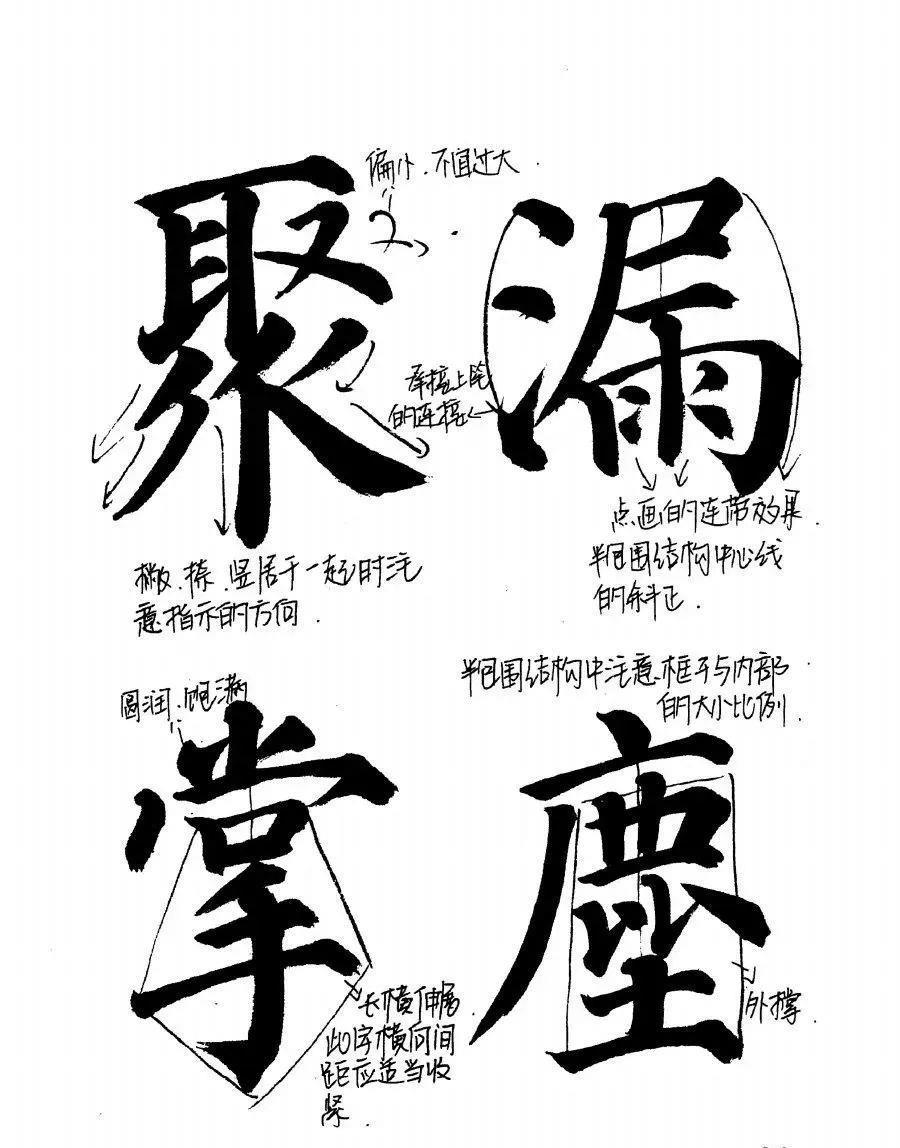 偏小.不宜过大.
聚
漏
承接上笔
的连接
点画的连带效果.
半包围结构中心线
的斜正.
撇.捺.竖居于一起时注
意指示的方向.
半包围结构中注意框子与内部
的大小比例.
圆润.饱满
掌
塵
长横伸展
此字横向间
距应适当收
紧.
外撑.